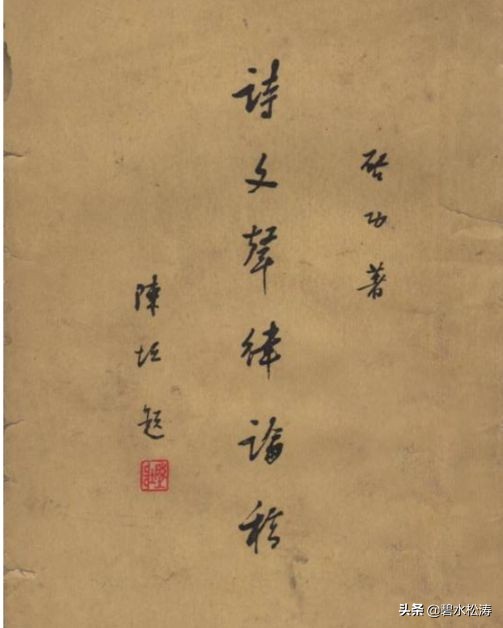 启功著
詩文聲律論稿
陳垣題
头条 @碧水松涛